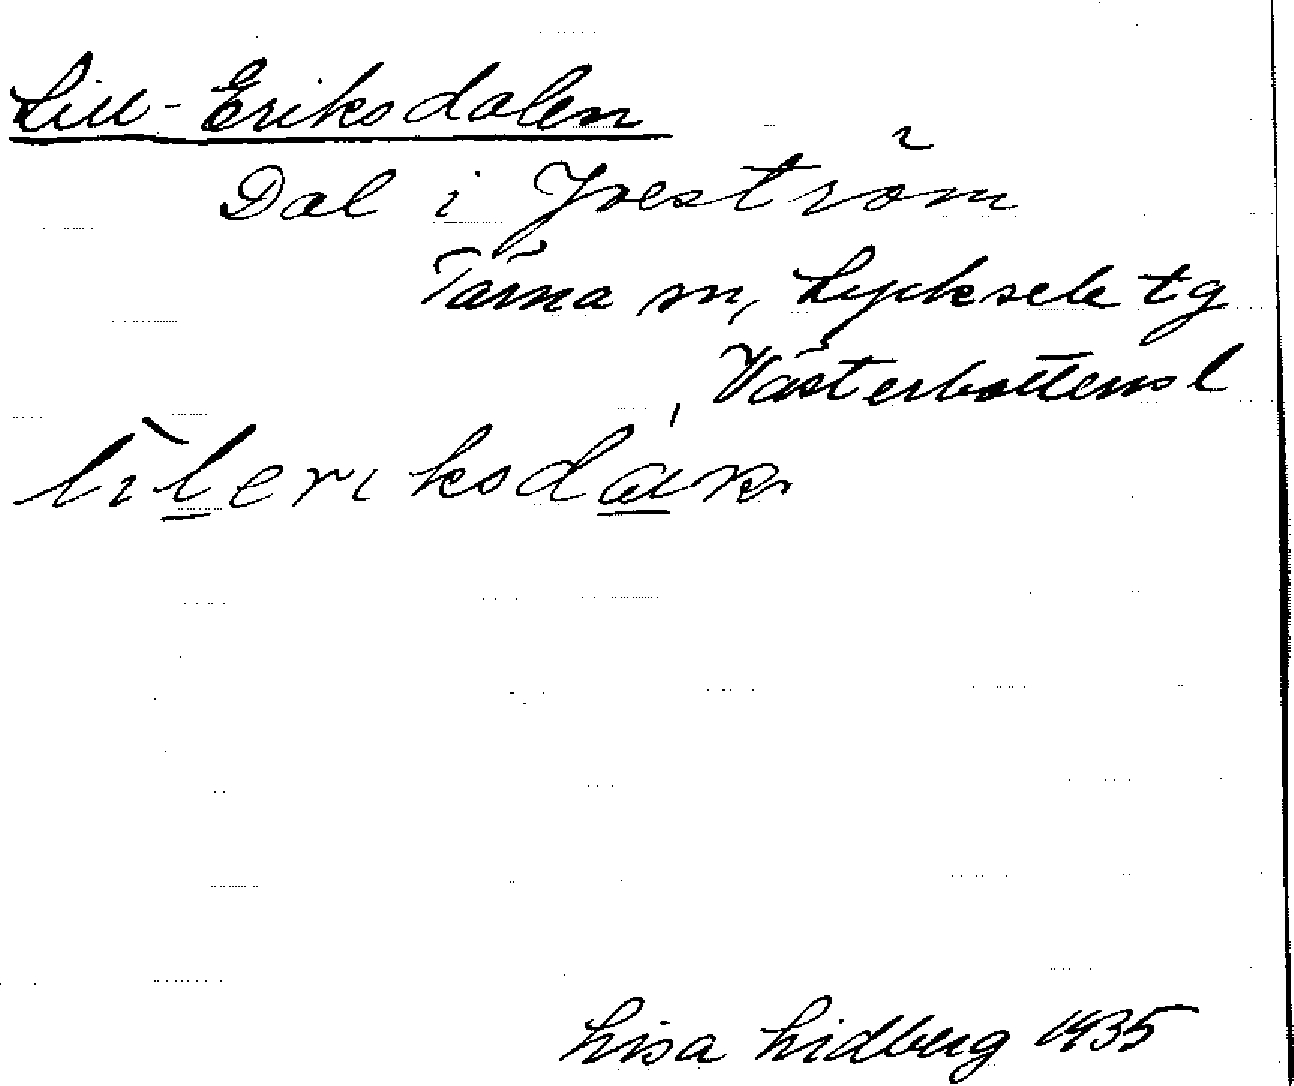 Lill-Eriksdalen
Dal i Joeström
Tärna sn, Lycksele tg
Västerbottens l
Lisa Lidberg 1935